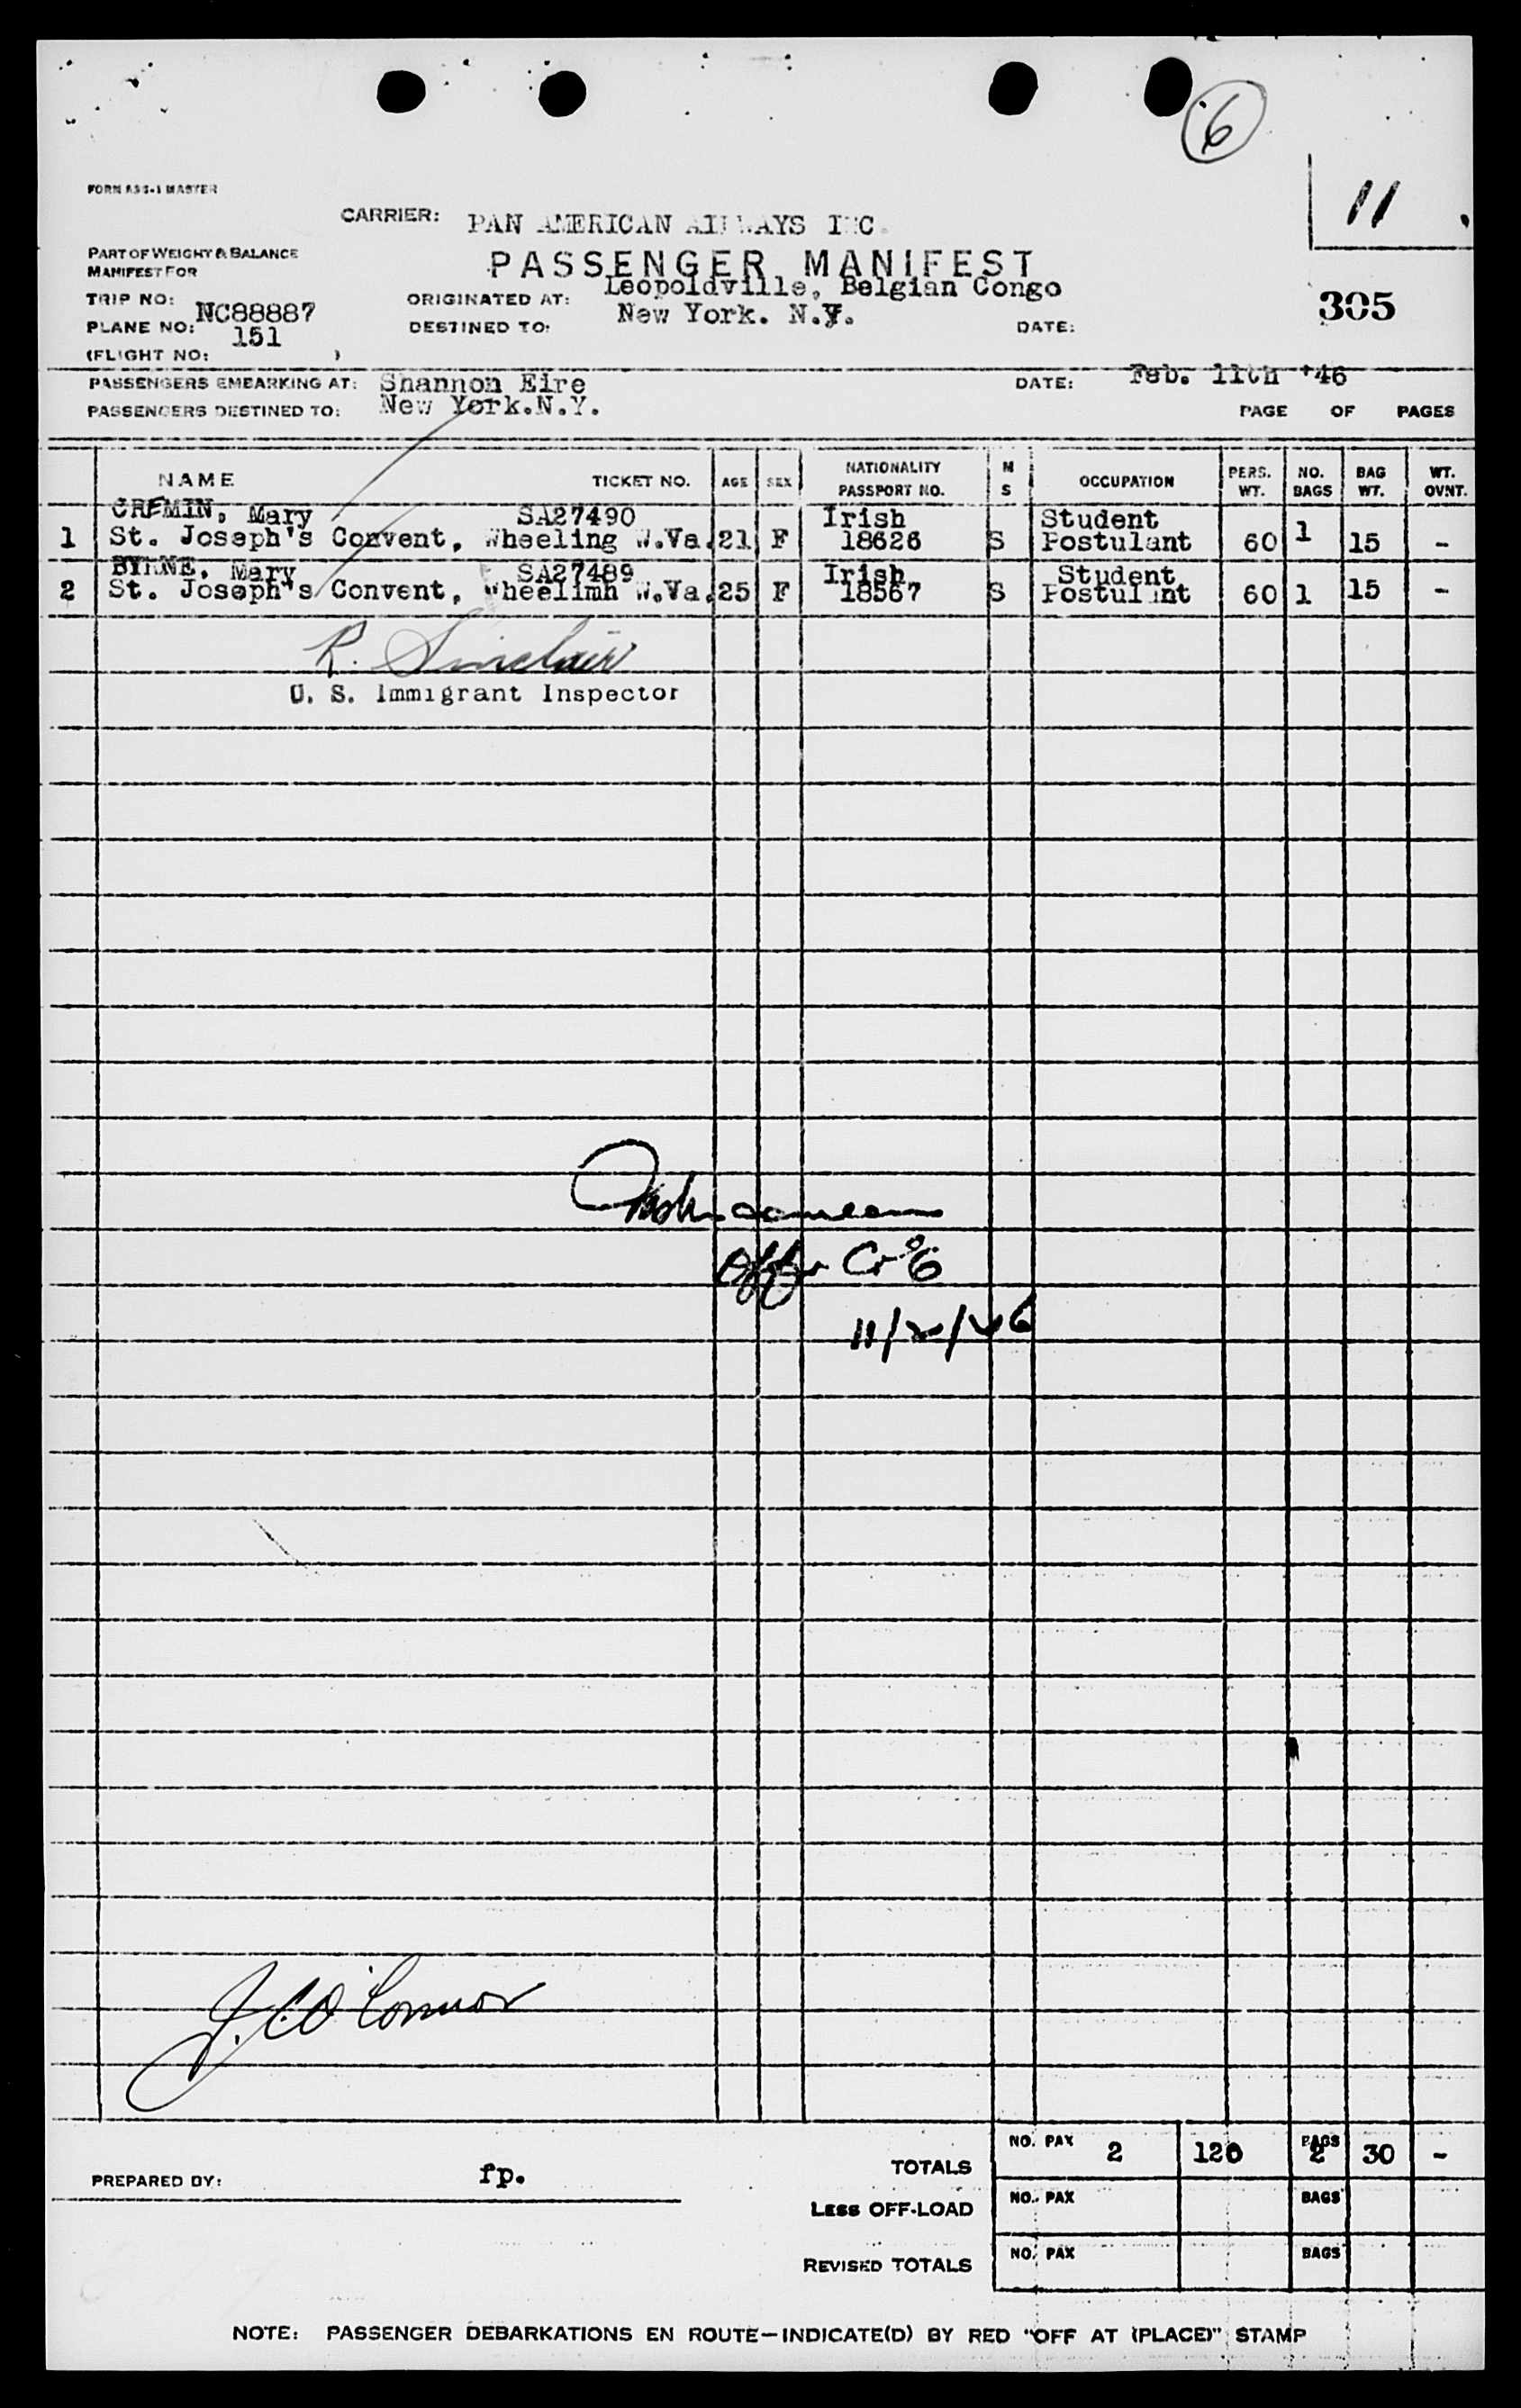 6
11
FORM ASS-1 MASTER
CARRIER: PAN AMERICAN AIRWAYS INC.
PART OF WEIGHT & BALANCE
MANIFEST FOR
PASSENGER MANIFEST
TRIP NO: NC88887
ORIGINATED AT: Leopoldville, Belgian Congo
305
PLANE NO: 151
DESTINED TO: New York. N.Y.
DATE:
(FLIGHT NO: )
PASSENGERS EMBARKING AT: Shannon Eire
DATE: Feb. 11th '46
PASSENGERS DESTINED TO: New York.N.Y.
PAGE OF PAGES
NAME TICKET NO. AGE SEX NATIONALITY PASSPORT NO. M S OCCUPATION PERS. WT. NO. BAGS BAG WT. WT. OVNT.
CREMIN, Mary SA27490 Irish Student
1 St. Joseph's Convent, Wheeling W.Va. 21 F 18626 S Postulant 60 1 15 -
BYRNE, Mary SA27489 Irish Student
2 St. Joseph's Convent, Wheelimh W.Va. 25 F 18567 S Postulant 60 1 15 -
R. Sinclair
U. S. Immigrant Inspector
11/2/46
J. C. O'Connor
TOTALS NO. PAX 2 120 BAGS 2 30 -
PREPARED BY: fp.
LESS OFF-LOAD NO. PAX BAGS
REVISED TOTALS NO. PAX BAGS
NOTE: PASSENGER DEBARKATIONS EN ROUTE—INDICATE(D) BY RED "OFF AT (PLACE)" STAMP